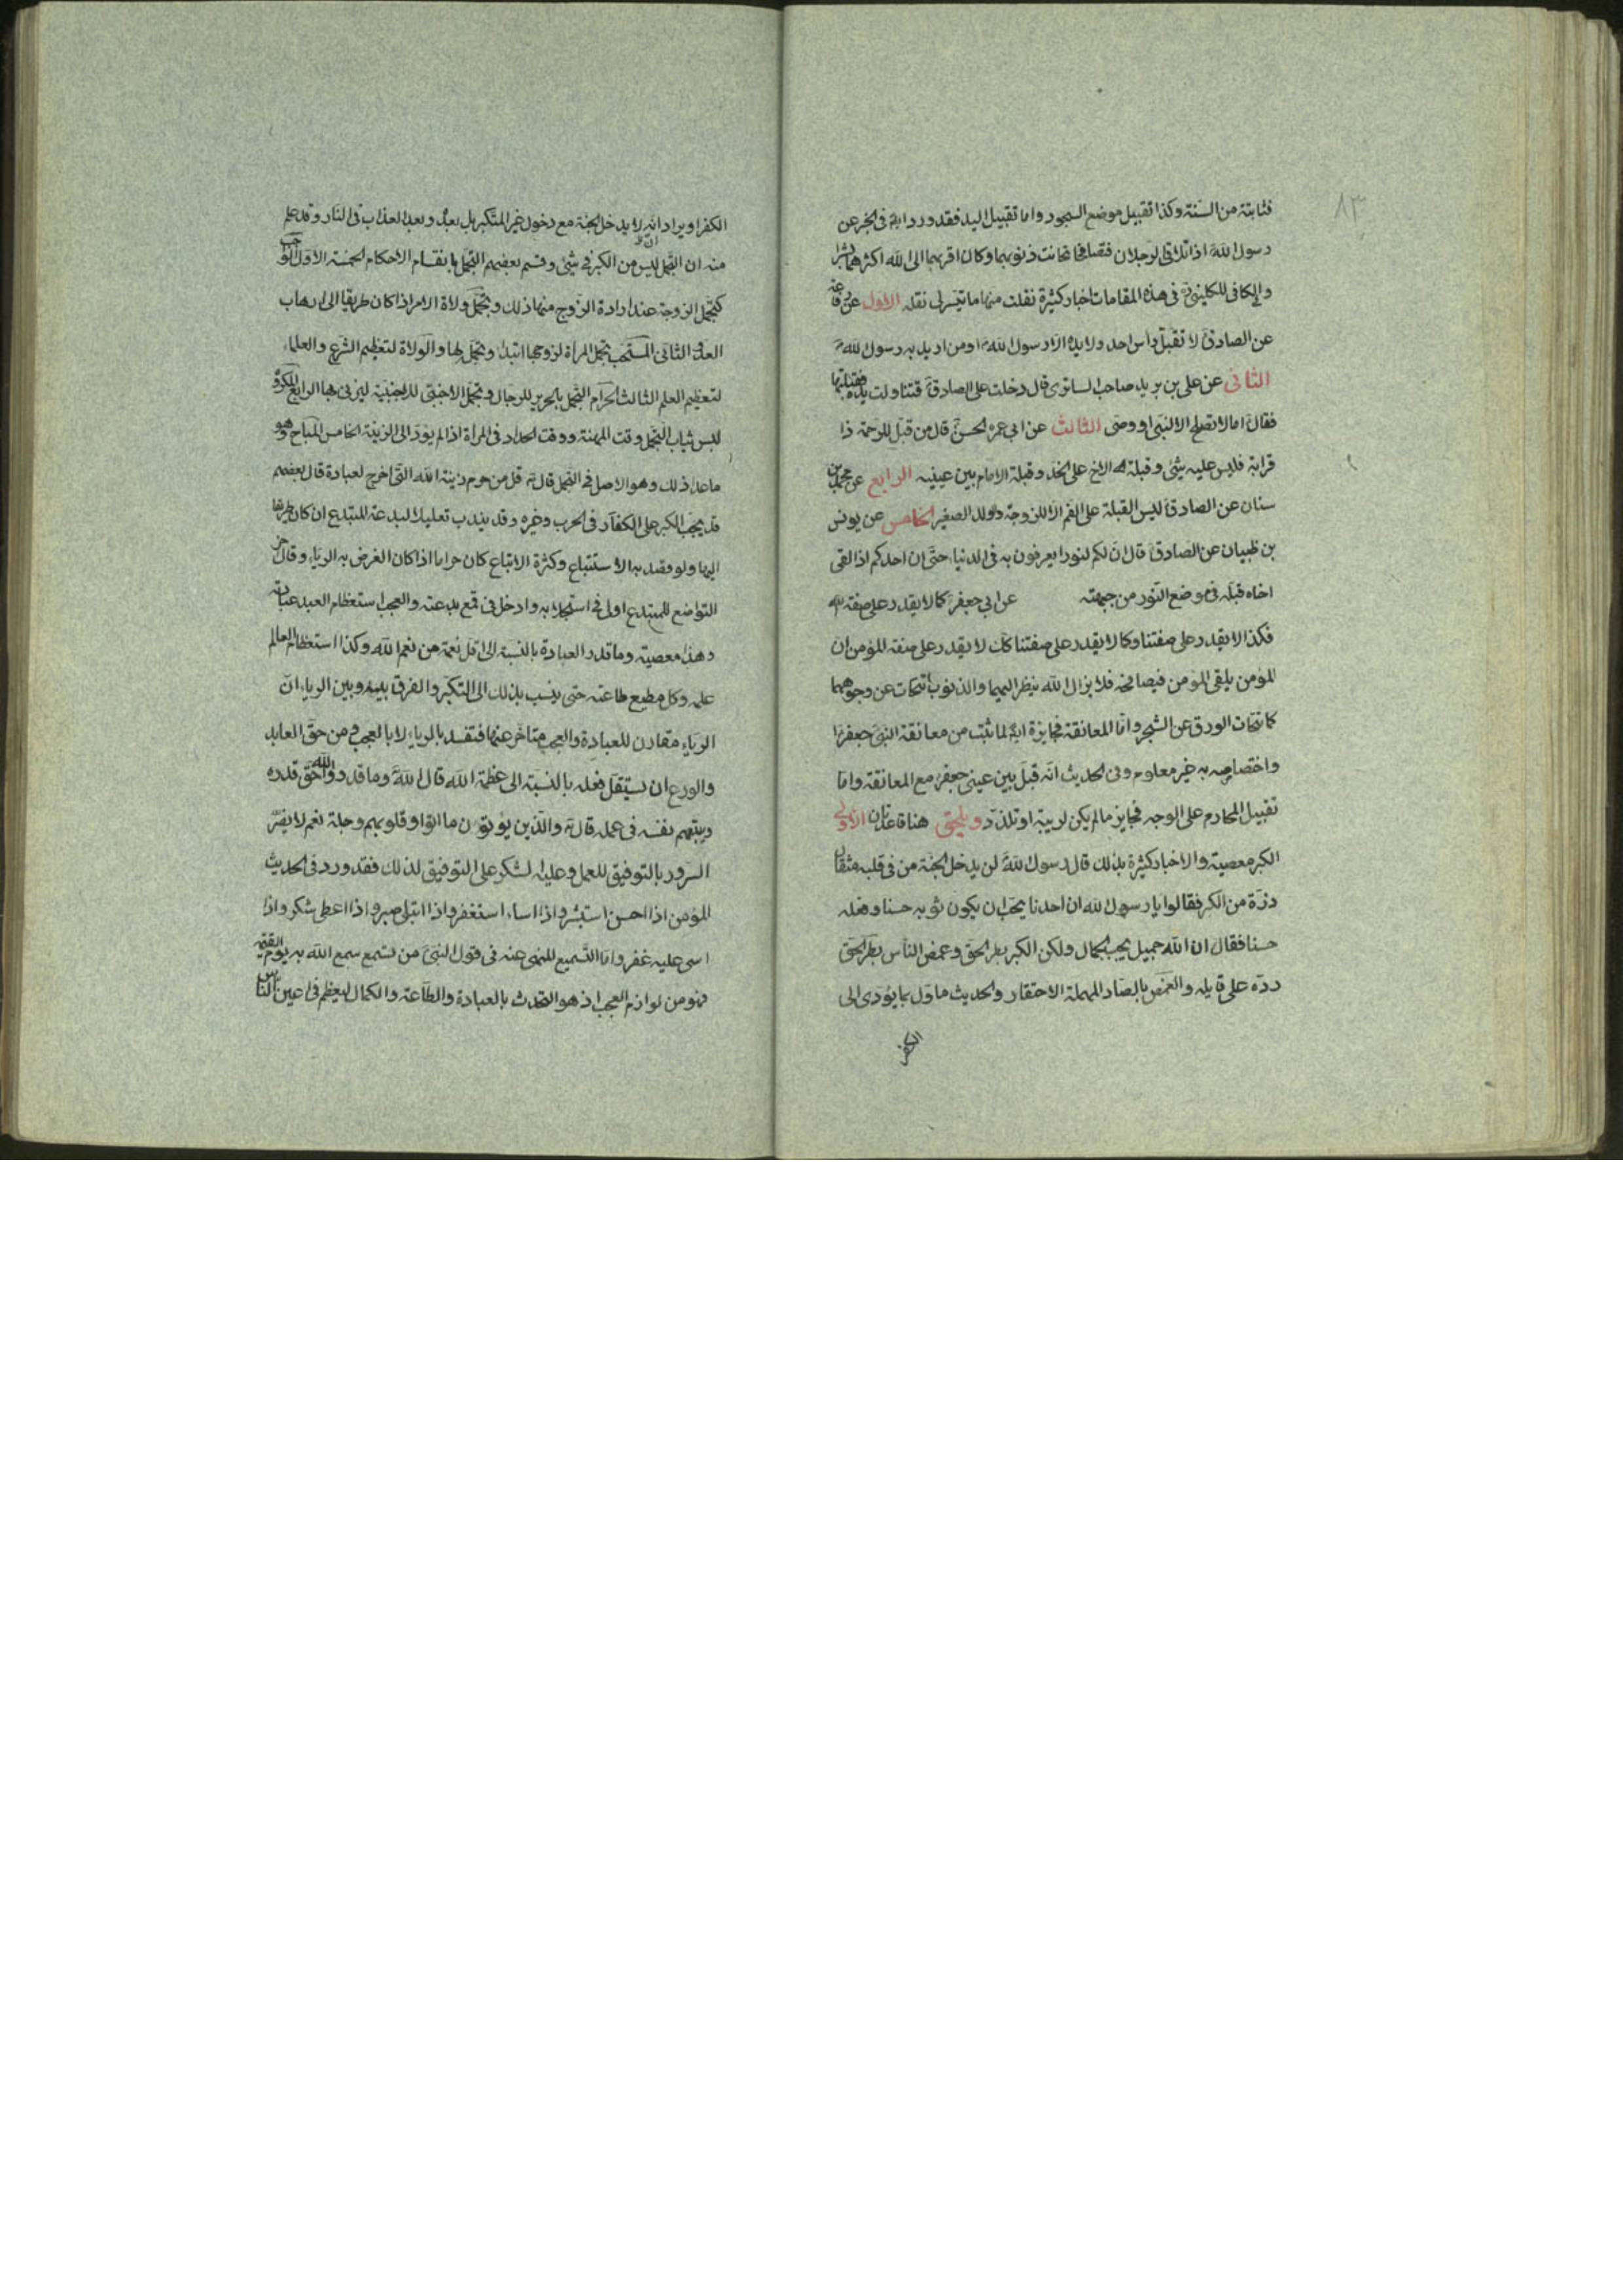 ٨٣
فثابتة من السنة وكذا تقبيل موضع السجود واما تقبيل اليد فقد ورد ايضا في الخبر عن
رسول الله اذا تلاقى الرجلان فتصافحا تحاتت ذنوبهما وكان اقربهما الى الله اكثرهما بشرا
والكافي للكليني في هذه المقامات اخبار كثيرة نقلت منها ما تيسر لي نقله الاول عن
عن الصادق لا تقبل راس احد ولا يده الا رسول الله او من اريد به رسول الله
الثاني عن علي بن بريد صاحب السابري قال دخلت على الصادق فتناولت يده فقبلتها
فقال اما لا تصلح الا لنبي او وصي الثالث عن ابي الحسن قال من قبل للرحمة ذا
قرابة فليس عليه شئ وقبلة الاخ على الخد وقبلة الامام بين عينيه الرابع عن محمد بن
سنان عن الصادق ليس القبلة على الفم الا للزوجة والولد الصغير الخامس عن يونس
بن ظبيان عن الصادق قال ان لكم لنورا يعرفون به في الدنيا حتى ان احدكم اذا لقى
اخاه قبله في موضع النور من جبهته عن ابي جعفر كما لا يقدر على صفة الله
فكذا لا يقدر على صفتنا وكما لا يقدر على صفتنا كك لا يقدر على صفة المؤمن ان
المؤمن يلقى المؤمن فيصافحه فلا يزال الله ينظر اليهما والذنوب تتحات عن وجوههما
كما تتحات الورق عن الشجر واما المعانقة فجايزة ايضا لما ثبت من معانقة النبي جعفرا
واختصاصه به غير معلوم وفي الحديث انه قبل بين عيني جعفر مع المعانقة واما
تقبيل المحارم على الوجه فجايز ما لم يكن لريبة او تلذذ ويلحق هنا قاعدتان الاولى
الكبر معصية والاخبار كثيرة بذلك قال رسول الله لن يدخل الجنة من في قلبه مثقال
ذرة من الكبر فقالوا يا رسول الله ان احدنا يحب ان يكون ثوبه حسنا وفعله
حسنا فقال ان الله جميل يحب الجمال ولكن الكبر بطر الحق وغمص الناس بطر الحق
رده على قايله والغمص بالصاد المهملة الاحتقار والحديث ماول بما يؤدى الى
الكفر
الكفر او يراد انه لا يدخل الجنة مع دخول غير المتكبر بل بعده وبعد العذاب في النار وقد علم
منه ان التجمل ليس من الكبر في شئ وقسم بعضهم التجمل بانقسام الاحكام الخمسة الاول الواجب
كتجمل الزوجة عند ارادة الزوج منها ذلك وتجمل ولاة الامر اذا كان طريقا الى ارهاب
العدو الثاني المستحب تجمل المرأة لزوجها ابتداء وتجمله لها والولاة لتعظيم الشرع والعلماء
لتعظيم العلم الثالث الحرام التجمل بالحرير للرجال وتجمل الاجنبي للاجنبية ليزني بها الرابع المكروه
لبس ثياب التجمل وقت المهنة ووقت الحداد في المرأة اذا لم يؤد الى الزينة الخامس المباح وهو
ما عدا ذلك وهو الاصل في التجمل قال قل من حرم زينة الله التي اخرج لعباده قال بعضهم
قد يجب الكبر على الكفار في الحرب وغيره وقد يندب تعليلا لبدعة المبتدع ان كان طريقا
اليها ولو قصد به الاستتباع وكثرة الاتباع كان حراما اذا كان الغرض به الرياء وقال
التواضع للمبتدع اولى في استجلابه وادخل في قمع بدعته والعجب استعظام العبد عبادته
وهذا معصية وما قدر العبادة بالنسبة الى اقل نعمة من نعم الله وكذا استعظام العالم
علمه وكل مطيع طاعته حتى ينسب بذلك الى التكبر والفرق بينه وبين الرياء ان
الرياء مقارن للعبادة والعجب متاخر عنها فتفسد بالرياء لا بالعجب ومن حق العابد
والورع ان يستقل فعله بالنسبة الى عظمة الله قال الله وما قدروا الله حق قدره
ويتهم نفسه في عمله قال والذين يؤتون ما اتوا وقلوبهم وجلة نعم لا يضر
السرور بالتوفيق للعمل وعليه الشكر على التوفيق لذلك فقد ورد في الحديث
المؤمن اذا احسن استبشر واذا اساء استغفر واذا ابتلى صبر واذا اعطى شكر واذا
اسى عليه غفر واما التسميع المنهى عنه في قول النبي من تسمع سمع الله به يوم القيمة
فهو من لوازم العجب اذ هو التحدث بالعبادة والطاعة والكمال ليعظم في اعين الناس